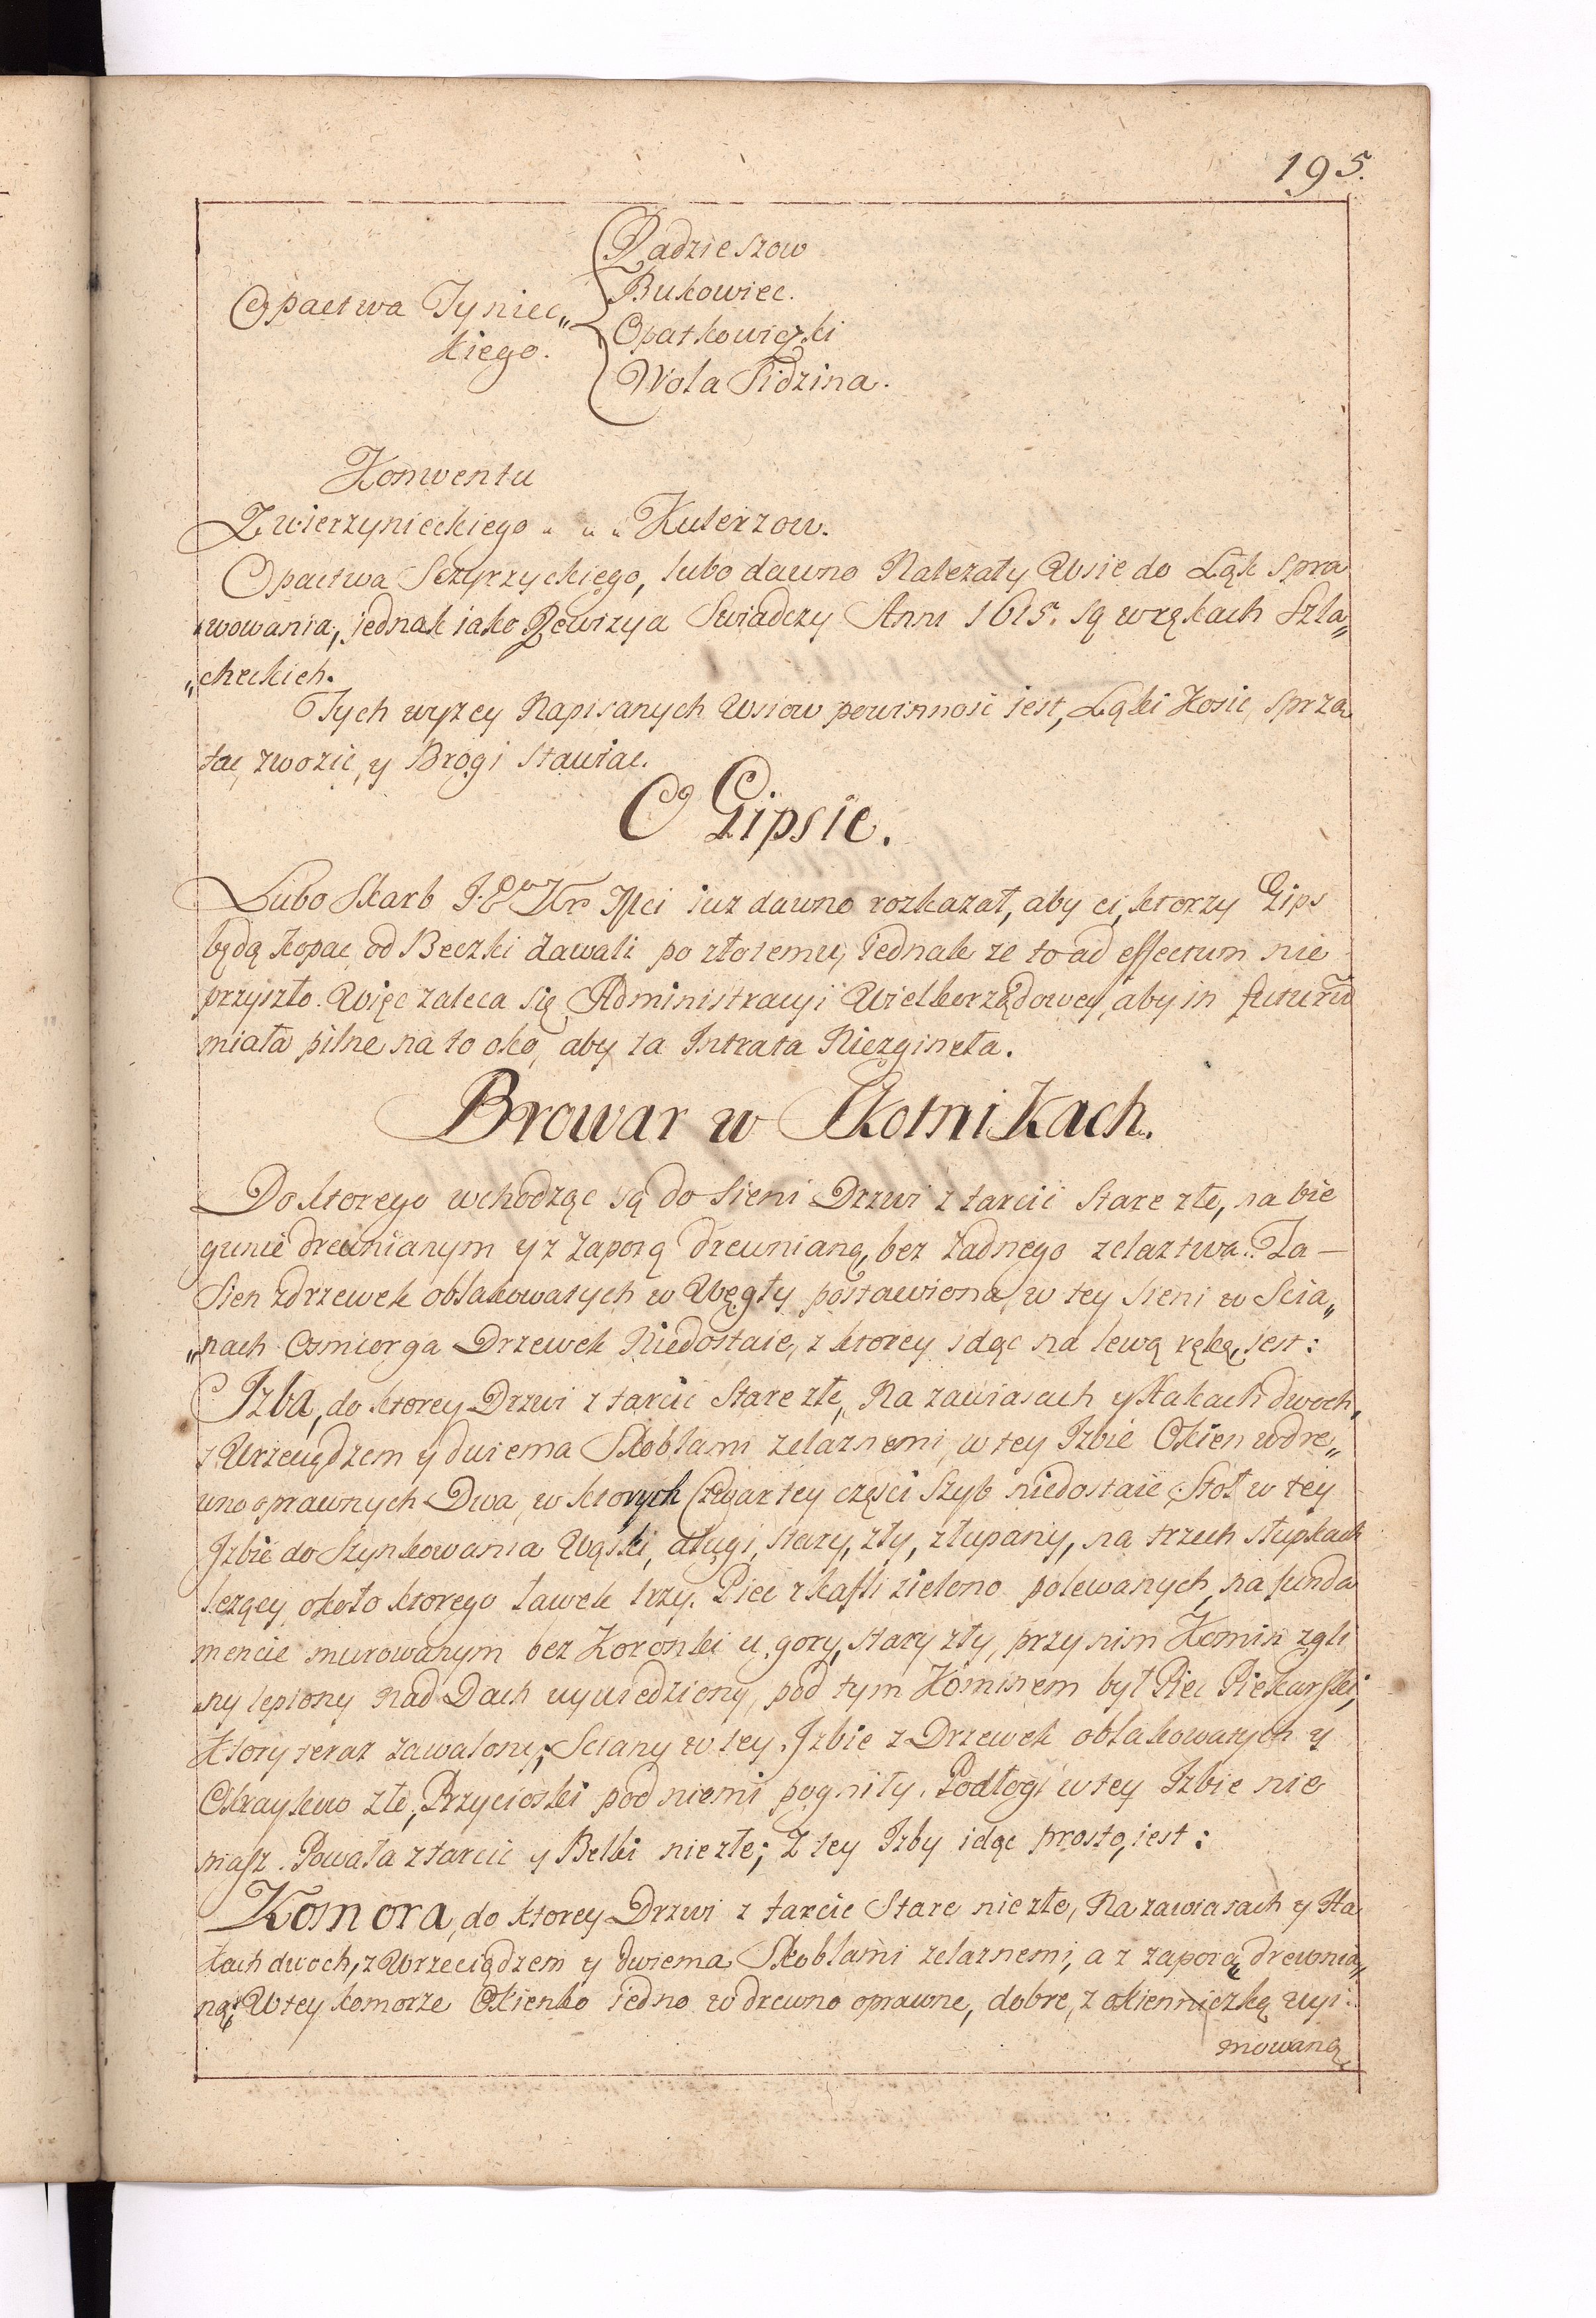 195.
Radzieszow
Bukowiec.
Opactwa Tyniec„
Opatkowiczki
kiego.
Wola Sidzina.
Konwentu
Zwierzynieckiego „ „ „ Kulerzow.
Opactwa Sczyrzyckiego, lubo dawno Należały Wsie do Łąk spra
„wowania, jednak iako Rewizya Swiadczy Anni 1615. są w rękach Szla„
„checkich.
Tych wyżey Napisanych Wsiow powinnosć iest, Łąki Kosic, sprzą
tac, zwozic, y Brogi stawiac.
O Gipsie.
Lubo Skarb J. Kr Mci iuz dawno rozkazał, aby ci, ktorzy Gips
będą kopac, od Beczki dawali po złotemu, iednak ze to ad effectum nie
przyszło. Więc zaleca się Administracyi Wielkorządowey, aby in futurũ
miała pilne na to oko, aby ta Intrata Niezgineła.
Browar w Skotnikach.
Do ktorego wchodząc są do Sieni Drzwi z tarcic Stare złe, na bie
gunie drewnianym y z Zaporą drewnianą, bez żadnego zelaztwa. Ta —
Sien zdrzewek obłakowatych w Węgły postawiona, w tey sieni w Scia„
„nach Osmiorga Drzewek Niedostaie, z ktorey idąc na lewą rękę, jest:
Izba, do ktorey Drzwi z tarcic Stare złe, Na zawiasach y Hakach dwoch,
z Wrzeciądzem y dwiema Skoblami zelaznemi, w tey Izbie Okien w dre„
wno oprawnych Dwa, w ktorych Czwartey części Szyb niedostaie, Stoł w tey
Izbie do Szynkowania Wąski, długi, stary, zły, złupany, na trzech słupkach
lezący, około ktorego ławek trzy. Piec z kafli zielono polewanych, na funda
mencie murowanym bez Koronki u gory, stary zły, przy nim Komin z gli
ny lepiony nad Dach wywiedziony, pod tym Kominem był Piec Piekarski,
Ktory teraz zawalony; Sciany w tey Izbie z Drzewek obłakowatych y
Okrayków złe, Przycieski pod niemi pogniły. Podłogi w tey Izbie nie
masz. Powała z tarcic y Belki niezłe; Z tey Izby idąc prosto, iest:
Komora, do ktorey Drzwi z tarcic Stare niezłe, Na zawiasach y Ha
kach dwoch, z Wrzeciądzem y dwiema Skoblami zelaznemi, a z zaporą drewnia„
ną; W tey komorze Okienko iedno w drewno oprawne, dobre, z okienniczką wyi„
mowaną